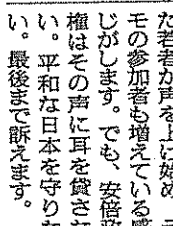 た若者が声を上げ始め、デ
モの参加者も増えている感
じがします。でも、安倍政
権はその声に耳を貸さな
い。平和な日本を守りた
い。最後まで訴えます。